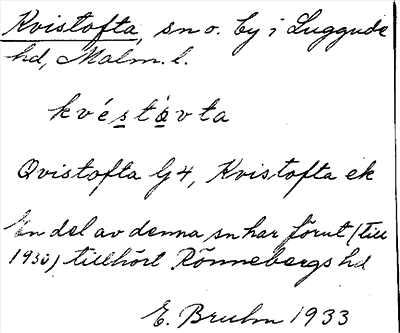 Kvistofta, sn o. by i Luggude
hd, Malm. l.
kvéstòvta
Qvistofta lj 4, Kvistofta ek
En del av denna sn har förut (till
1930) tillhört Rönnebergs hd
E. Bruhn 1933